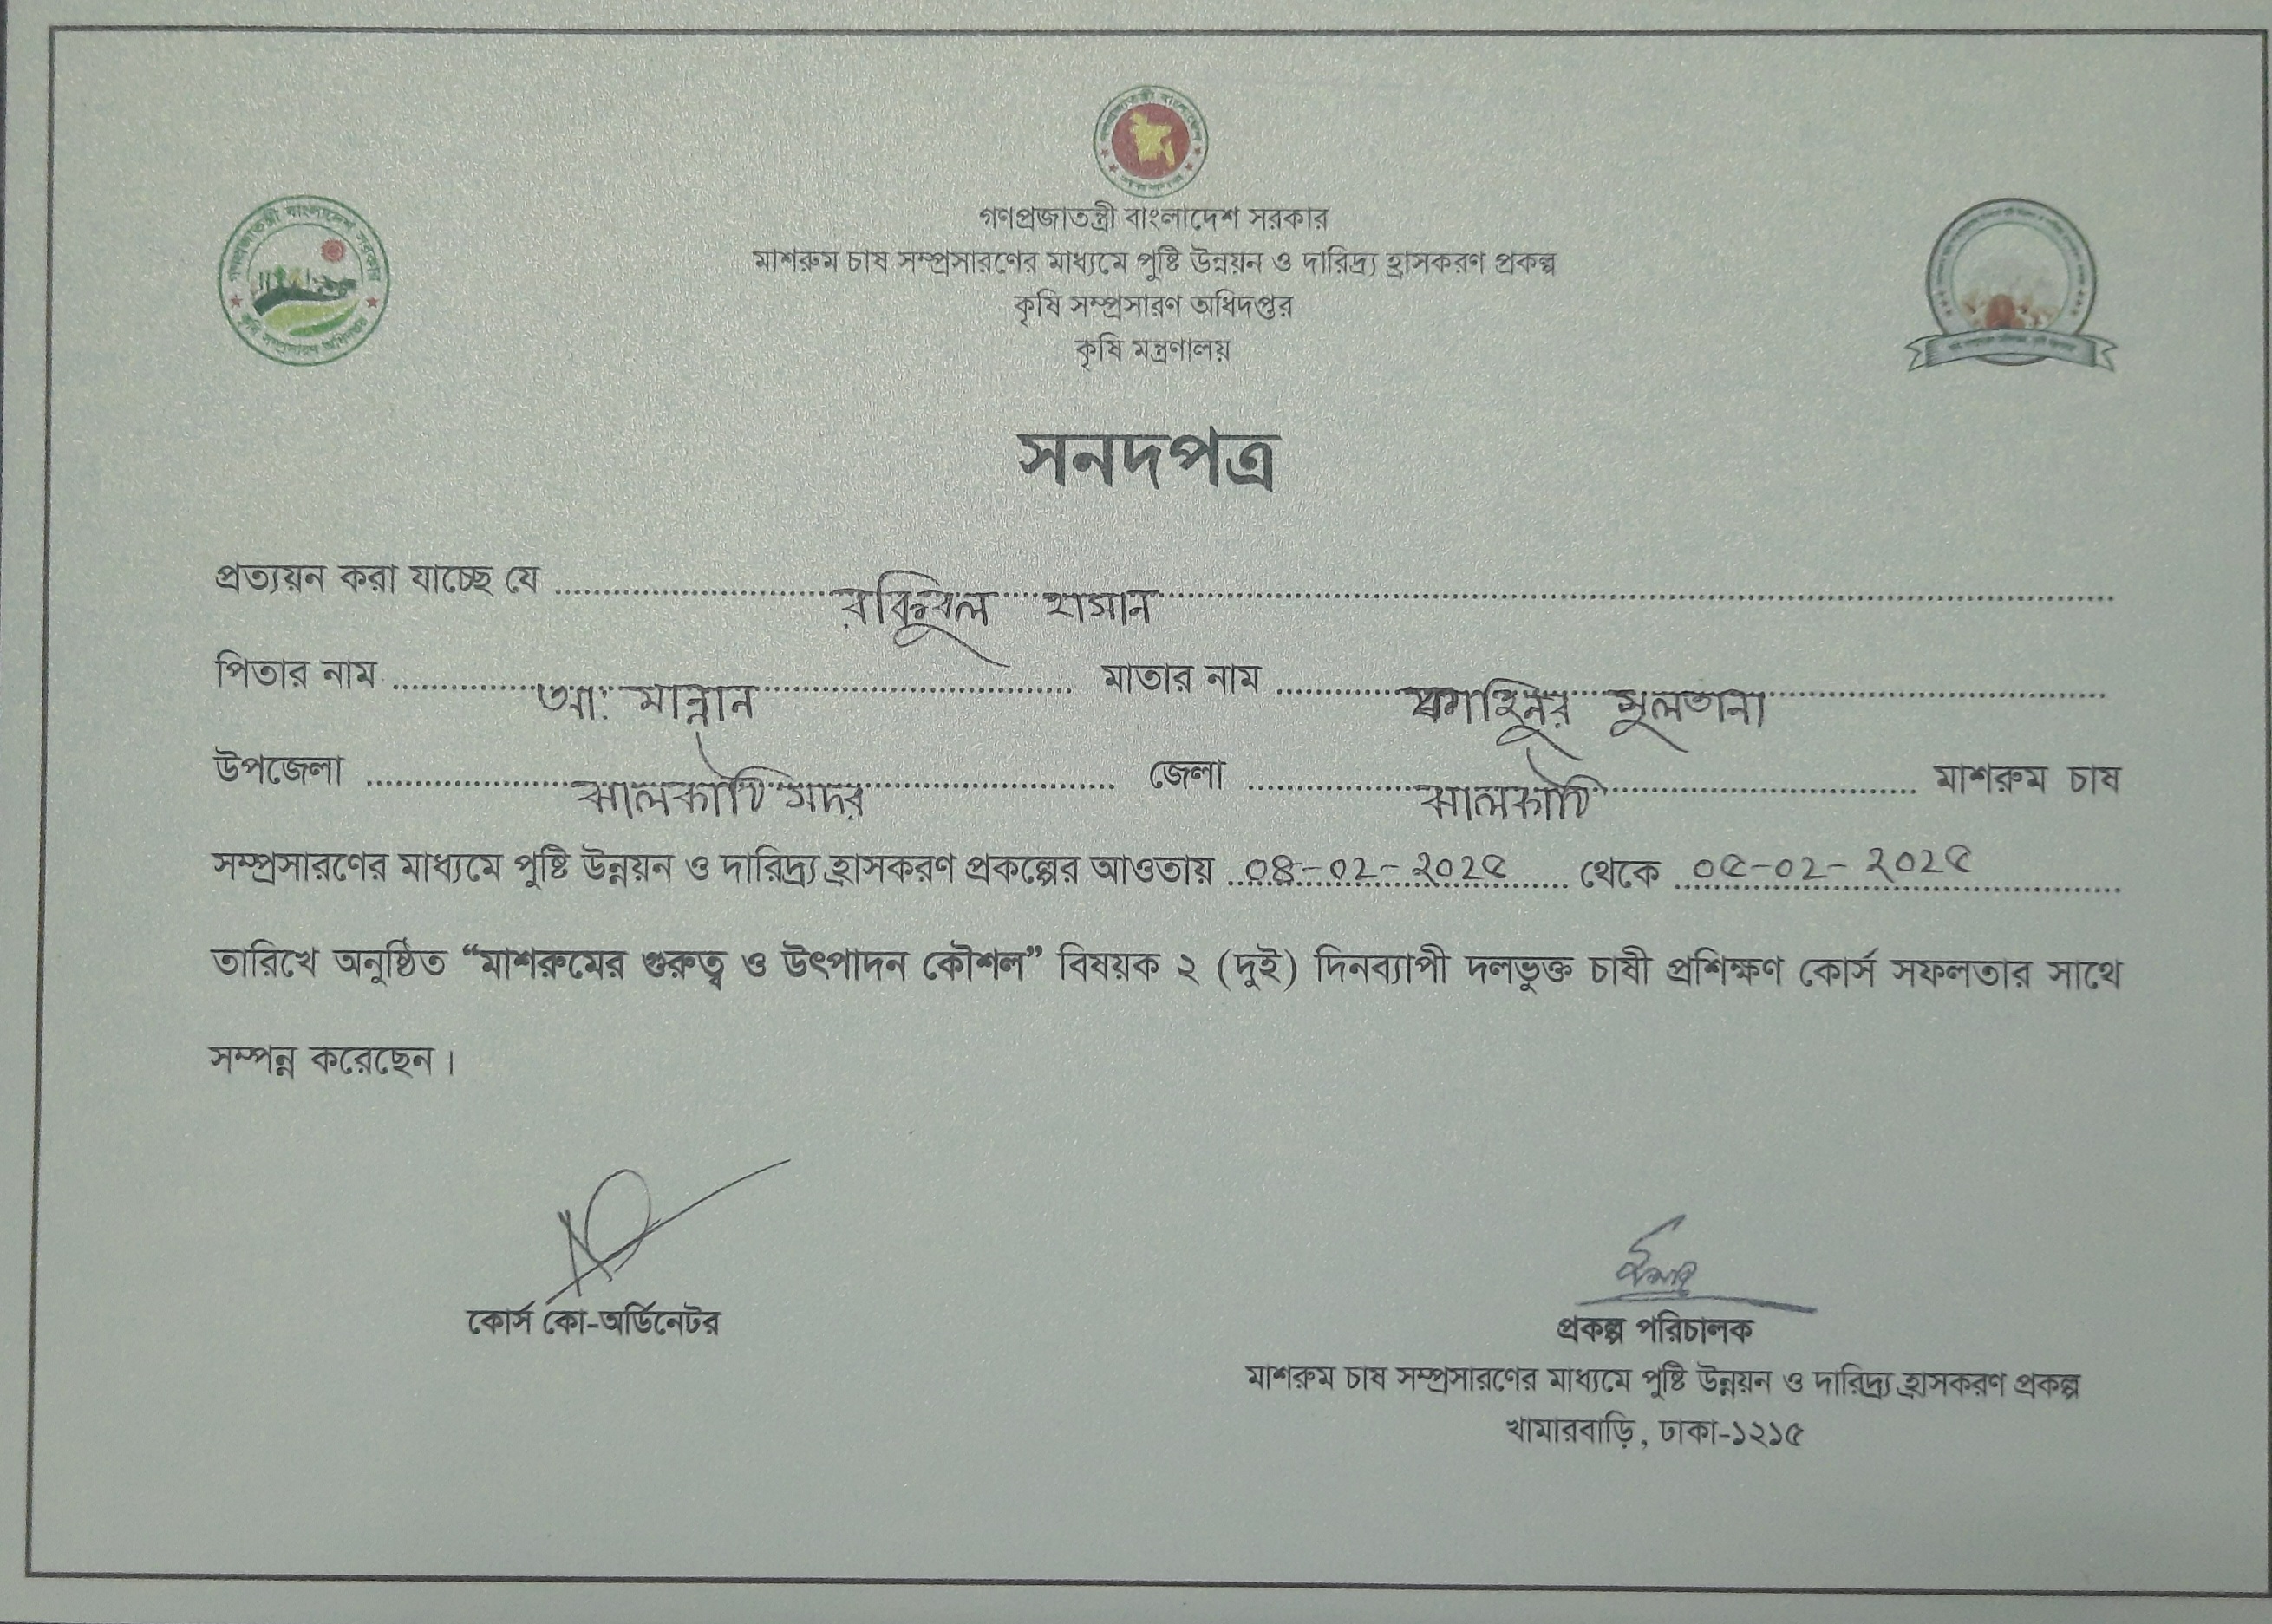 গণপ্রজাতন্ত্রী বাংলাদেশ সরকার
মাশরুম চাষ সম্প্রসারণের মাধ্যমে পুষ্টি উন্নয়ন ও দারিদ্র্য হ্রাসকরণ প্রকল্প
কৃষি সম্প্রসারণ অধিদপ্তর
কৃষি মন্ত্রণালয়
গণপ্রজাতন্ত্রী বাংলাদেশ সরকার
কৃষি সম্প্রসারণ অধিদপ্তর
সনদপত্র
প্রত্যয়ন করা যাচ্ছে যে রকিবুল হাসান
পিতার নাম আ: মান্নান মাতার নাম সুলতানা
উপজেলা ঝালকাঠি সদর জেলা ঝালকাঠি মাশরুম চাষ
সম্প্রসারণের মাধ্যমে পুষ্টি উন্নয়ন ও দারিদ্র্য হ্রাসকরণ প্রকল্পের আওতায় ০৪-০২-২০২৫ থেকে ০৫-০২-২০২৫
তারিখে অনুষ্ঠিত “মাশরুমের গুরুত্ব ও উৎপাদন কৌশল” বিষয়ক ২ (দুই) দিনব্যাপী দলভুক্ত চাষী প্রশিক্ষণ কোর্স সফলতার সাথে
সম্পন্ন করেছেন।
কোর্স কো-অর্ডিনেটর
প্রকল্প পরিচালক
মাশরুম চাষ সম্প্রসারণের মাধ্যমে পুষ্টি উন্নয়ন ও দারিদ্র্য হ্রাসকরণ প্রকল্প
খামারবাড়ি, ঢাকা-১২১৫